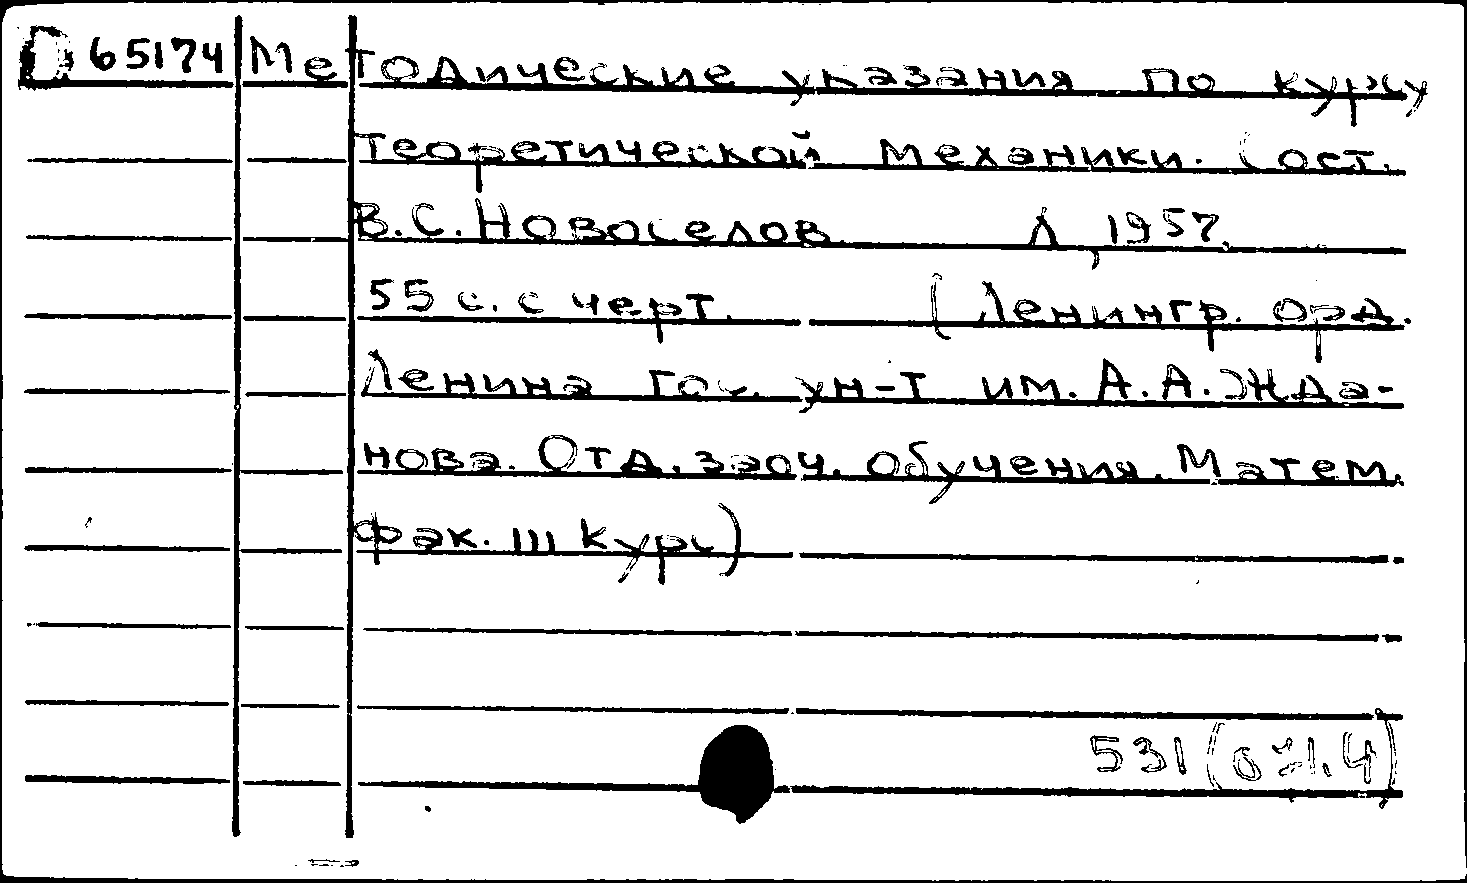 D 65174 Методические указания по курсу
теоретической механики. Сост.
В.С. Новоселов Л, 1957.
55 с. с черт. (Ленингр. орд.
Ленина Гос. ун-т им. А.А. Жда-
нова. Отд. заоч. обучения. Матем.
фак. III курс)
531(071.4)